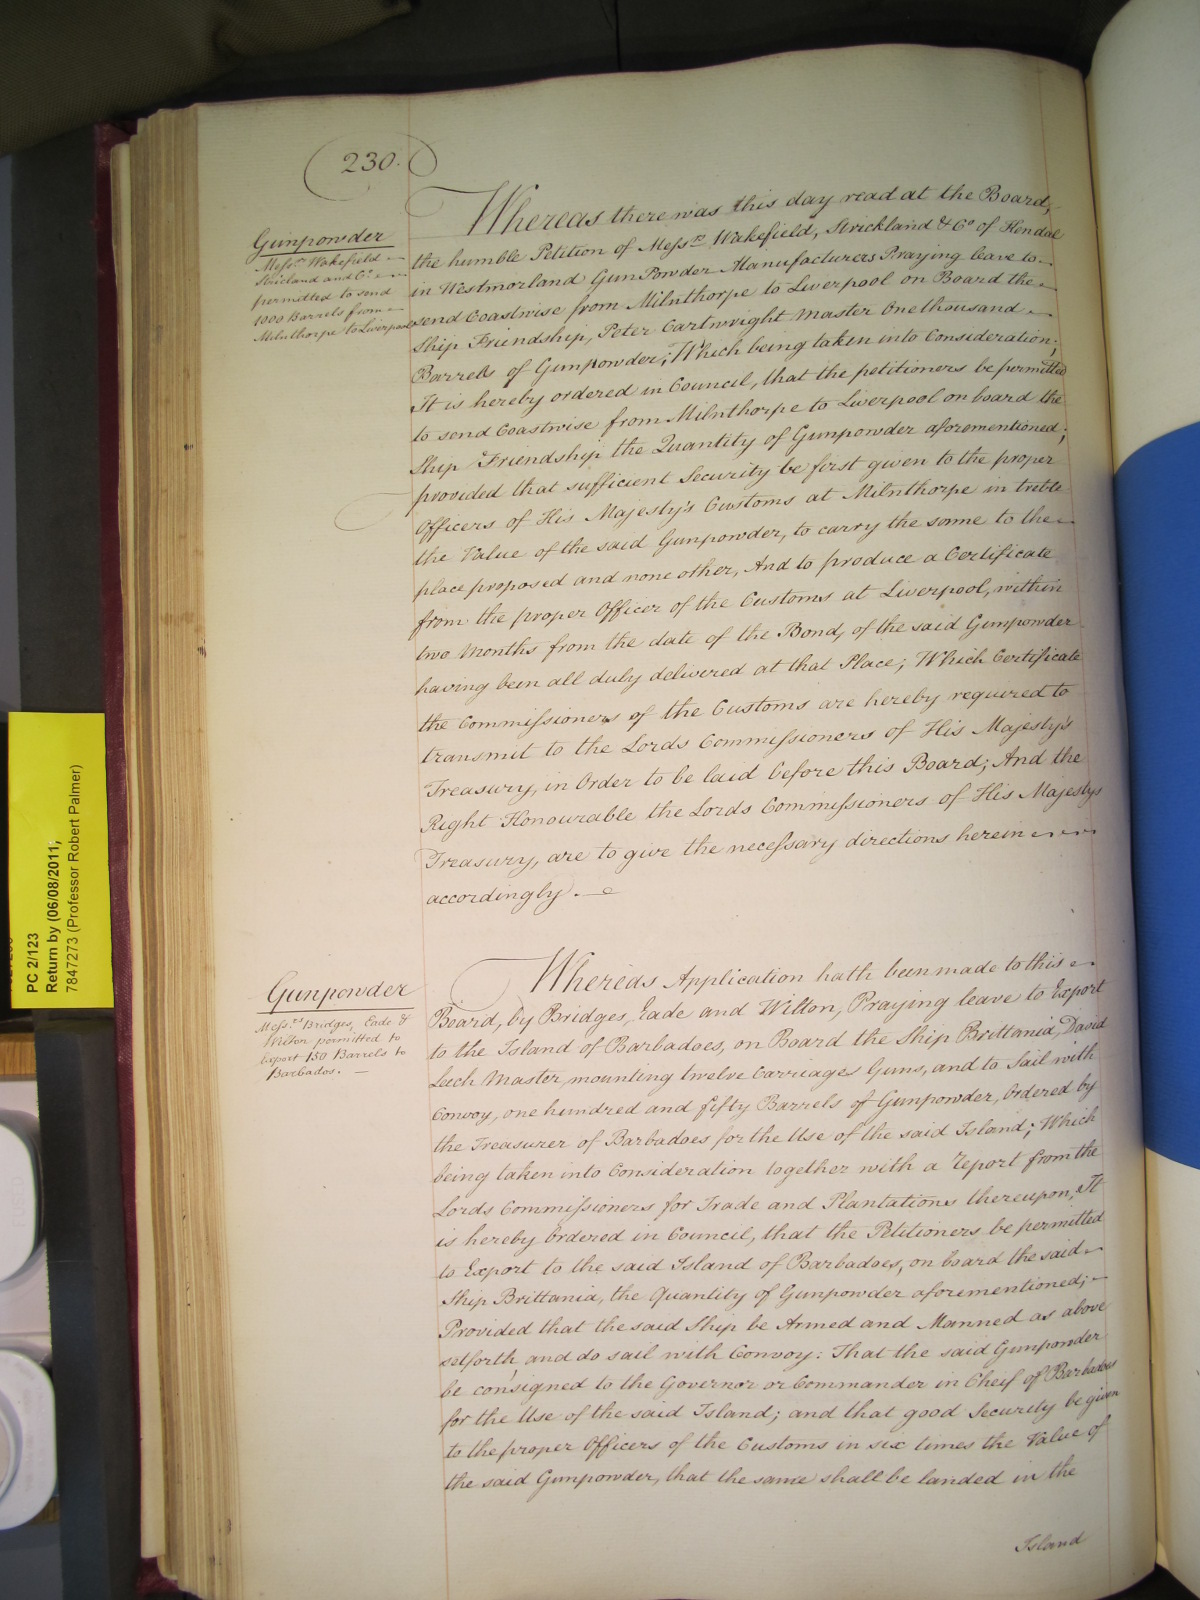 230.
Gunpowder
Mess.rs Wakefield
Stricland and Co.
permitted to send
1000 Barrels from
Milnthorpe to Liverpool
Whereas there was this day read at the Board,
the humble Petition of Mess.rs Wakefield, Strickland & Co. of Kendal
in Westmorland GunPowder Manufacturers Praying leave to
send Coastwise from Milnthorpe to Liverpool on Board the
Ship Friendship, Peter Cartwright Master One thousand
Barrels of Gunpowder; Which being taken into Consideration;
It is hereby ordered in Council, that the petitioners be permitted
to send Coastwise from Milnthorpe to Liverpool on board the
Ship Friendship the Quantity of Gunpowder aforementioned;
provided that sufficient Security be first given to the proper
Officers of His Majesty's Customs at Milnthorpe in treble
the Value of the said Gunpowder, to carry the same to the
place proposed and none other, And to produce a Certificate
from the proper Officer of the Customs at Liverpool, within
two Months from the date of the Bond, of the said Gunpowder
having been all duly delivered at that Place; Which Certificate
the Commissioners of the Customs are hereby required to
transmit to the Lords Commissioners of His Majesty's
Treasury, in Order to be laid before this Board; And the
Right Honourable the Lords Commissioners of His Majestys
Treasury, are to give the necessary directions herein
accordingly.
Gunpowder
Mess.rs Bridges, Eade &
Wilton permitted to
Export 150 Barrels to
Barbados.
Whereas Application hath been made to this
Board, by Bridges, Eade and Wilton, Praying leave to Export
to the Island of Barbadoes, on Board the Ship Brittania, David
Leech Master, mounting twelve Carriages Guns, and to Sail with
Convoy, one hundred and fifty Barrels of Gunpowder, Ordered by
the Treasurer of Barbadoes for the Use of the said Island; Which
being taken into Consideration together with a report from the
Lords Commissioners for Trade and Plantations thereupon, It
is hereby Ordered in Council, that the Petitioners be permitted
to Export to the said Island of Barbadoes, on board the said
Ship Brittania, the Quantity of Gunpowder aforementioned;
Provided that the said Ship be Armed and Manned as above
setforth and do sail with Convoy: That the said Gunpowder
be consigned to the Governor or Commander in Cheif of Barbadoes
for the Use of the said Island; and that good Security be given
to the proper Officers of the Customs in six times the Value of
the said Gunpowder, that the same shall be landed in the
Island
PC 2/123
Return by (06/08/2011;
7847273 (Professor Robert Palmer)